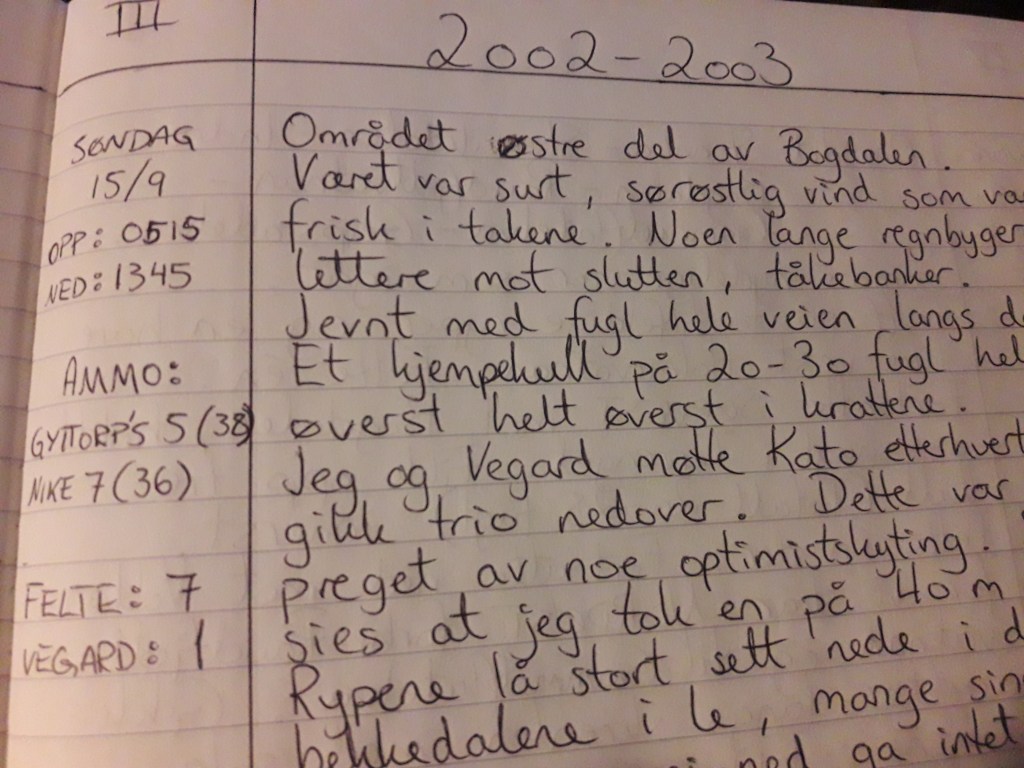 III
2002-2003
SØNDAG
15/9
OPP: 0515
NED: 1345
AMMO:
GYTTORP'S 5 (38)
NIKE 7 (36)
FELTE: 7
VEGARD: 1
Området østre del av Bogdalen.
Været var surt, sørøstlig vind som va
frisk i takene. Noen lange regnbyger
lettere mot slutten, tåkebanker.
Jevnt med fugl hele veien langs d
Et kjempekull på 20-30 fugl hel
øverst helt øverst i krattene.
Jeg og Vegard møtte Kato etterhvert
gikk trio nedover. Dette var
preget av noe optimistskyting.
sies at jeg tok en på 40 m
Rypene lå stort sett nede i d
bekkedalene i le, mange sin
ned ga intet